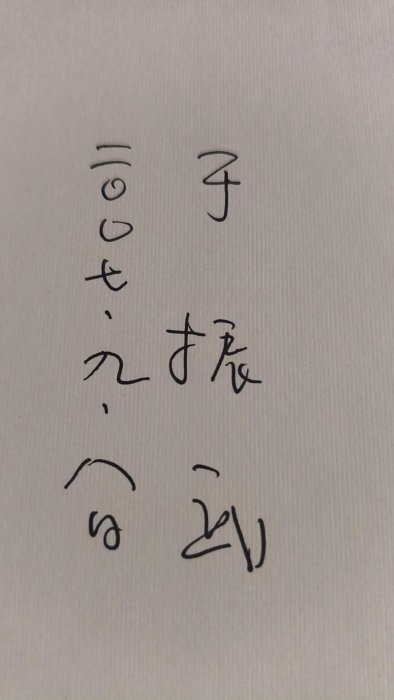 于振武
二〇〇七.九.八日